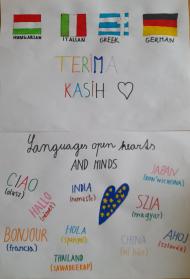 HUNGARIAN
ITALIAN
GREEK
GERMAN
TERIMA
KASIH
Languages open hearts
AND MINDS
CIAO
(olasz)
HALLO
INDIA
(namaste)
JAPAN
(KON'NICHIWA)
SZIA
(magyar)
BONJOUR
(francia)
HOLA
(spanyol)
CHINA
(ni hao)
AHOJ
(szlovák)
THAILAND
(SAWADEEKAP)